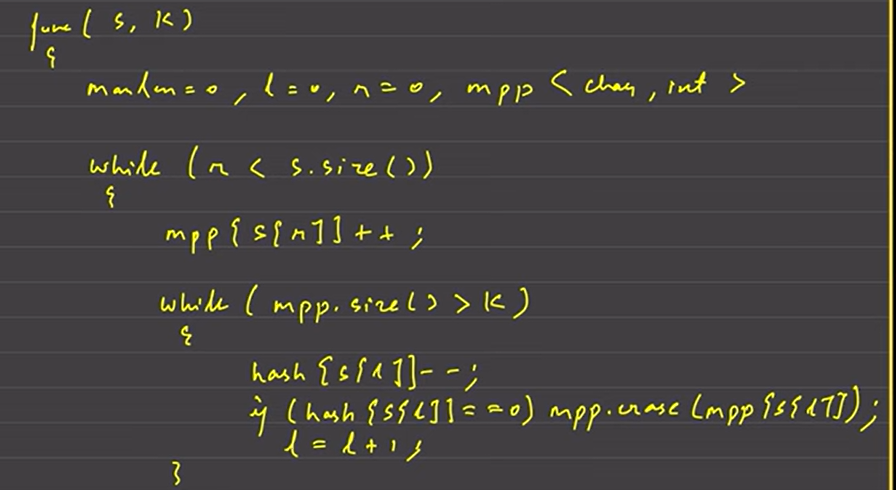 func( s, k)
{
maxlen = 0, l = 0, r = 0, mpp < char, int >
while (r < s.size())
{
mpp[s[r]]++;
while ( mpp.size() > k)
{
hash[s[l]]--;
if (hash[s[l]] == 0) mpp.erase(mpp[s[l]]);
l = l + 1;
}